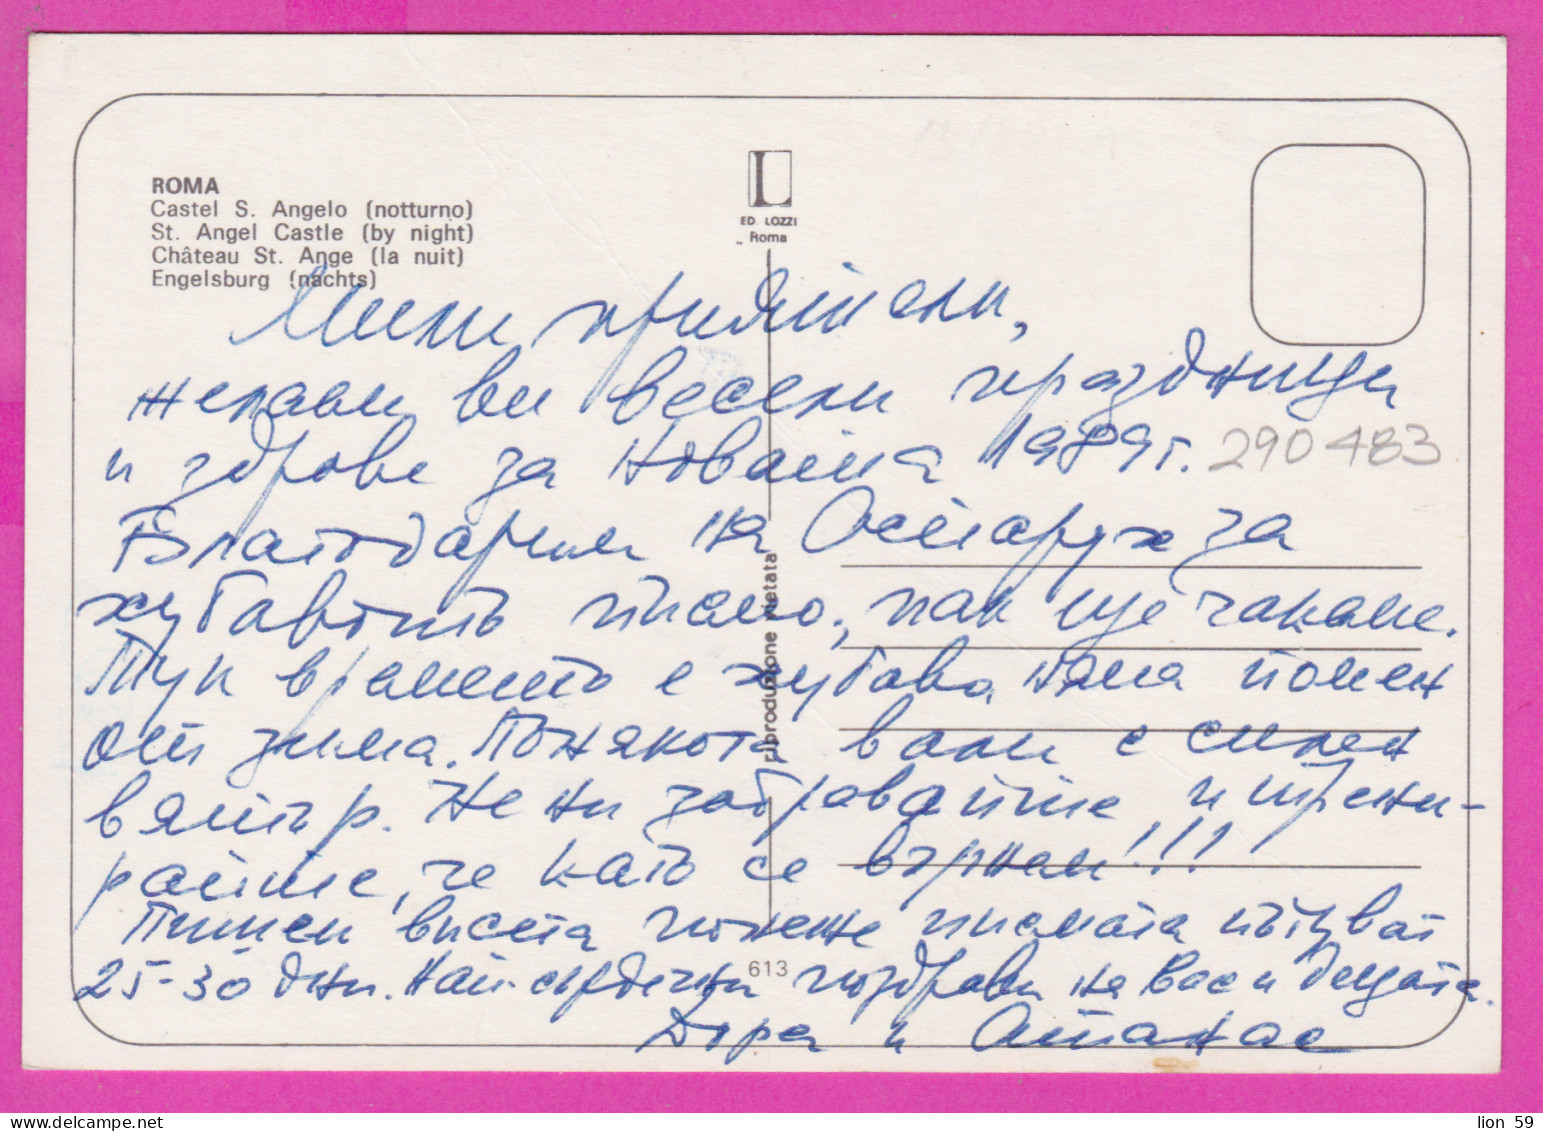 ROMA
Castel S. Angelo (notturno)
St. Angel Castle (by night)
Château St. Ange (la nuit)
Engelsburg (nachts)
L
ED. LOZZI
Roma
Мили приятели,
желаем ви весели празници
и здраве за Новата 1989 г. 290483
Благодарим на Аспарух за
хубавото писмо, пак ще чакаме.
Тук времето е хубаво няма помен
от зима. Понякога вали с силен
вятър. Не ни забравяйте и трени-
райте, че като се върнем!!!
Пишем висета понеже писмата пътуват
25-30 дни. Най-сърдечни поздрави на Вас и децата.
Дора и Атанас
riproduzione vietata
613
lion 59